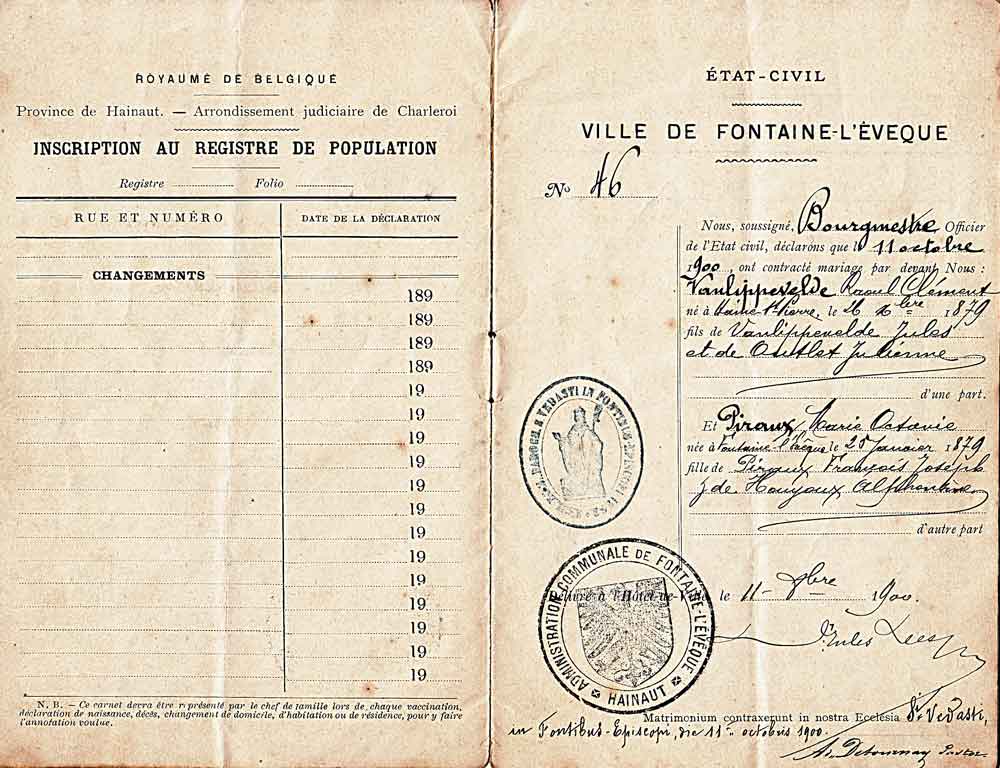 ROYAUME DE BELGIQUE
Province de Hainaut. — Arrondissement judiciaire de Charleroi
INSCRIPTION AU REGISTRE DE POPULATION
Registre Folio
RUE ET NUMÉRO DATE DE LA DÉCLARATION
CHANGEMENTS
189
189
189
189
19
19
19
19
19
19
19
19
19
19
19
19
19
N. B. — Ce carnet devra être représenté par le chef de famille lors de chaque vaccination,
déclaration de naissance, décès, changement de domicile, d'habitation ou de résidence, pour y faire
l'annotation voulue.
ÉTAT-CIVIL
VILLE DE FONTAINE-L'ÉVEQUE
No 46
Nous, soussigné, Bourgmestre Officier
de l'Etat civil, déclarons que le 11 octobre
1900, ont contracté mariage par devant Nous :
Vanlippevelde Raoul Clément
né à Haine St Pierre, le 26 Xbre 1879
fils de Vanlippevelde Jules
et de Outlet Julienne
d'une part.
Et Piraux Marie Octavie
née à Fontaine l'Evêque le 25 Janvier 1879
fille de Piraux François Joseph
& de Houyoux Alphonsine
d'autre part
VEDASTI IN FONTIBUS EPISCOPI
ADMINISTRATION COMMUNALE DE FONTAINE-L'ÉVEQUE
HAINAUT
Délivré à l'Hôtel-de-Ville, le 11 8bre 1900.
Jules
Matrimonium contraxerunt in nostra Ecclesia St Vedasti,
in Fontibus-Episcopi, die 11a octobris 1900.
Pastor